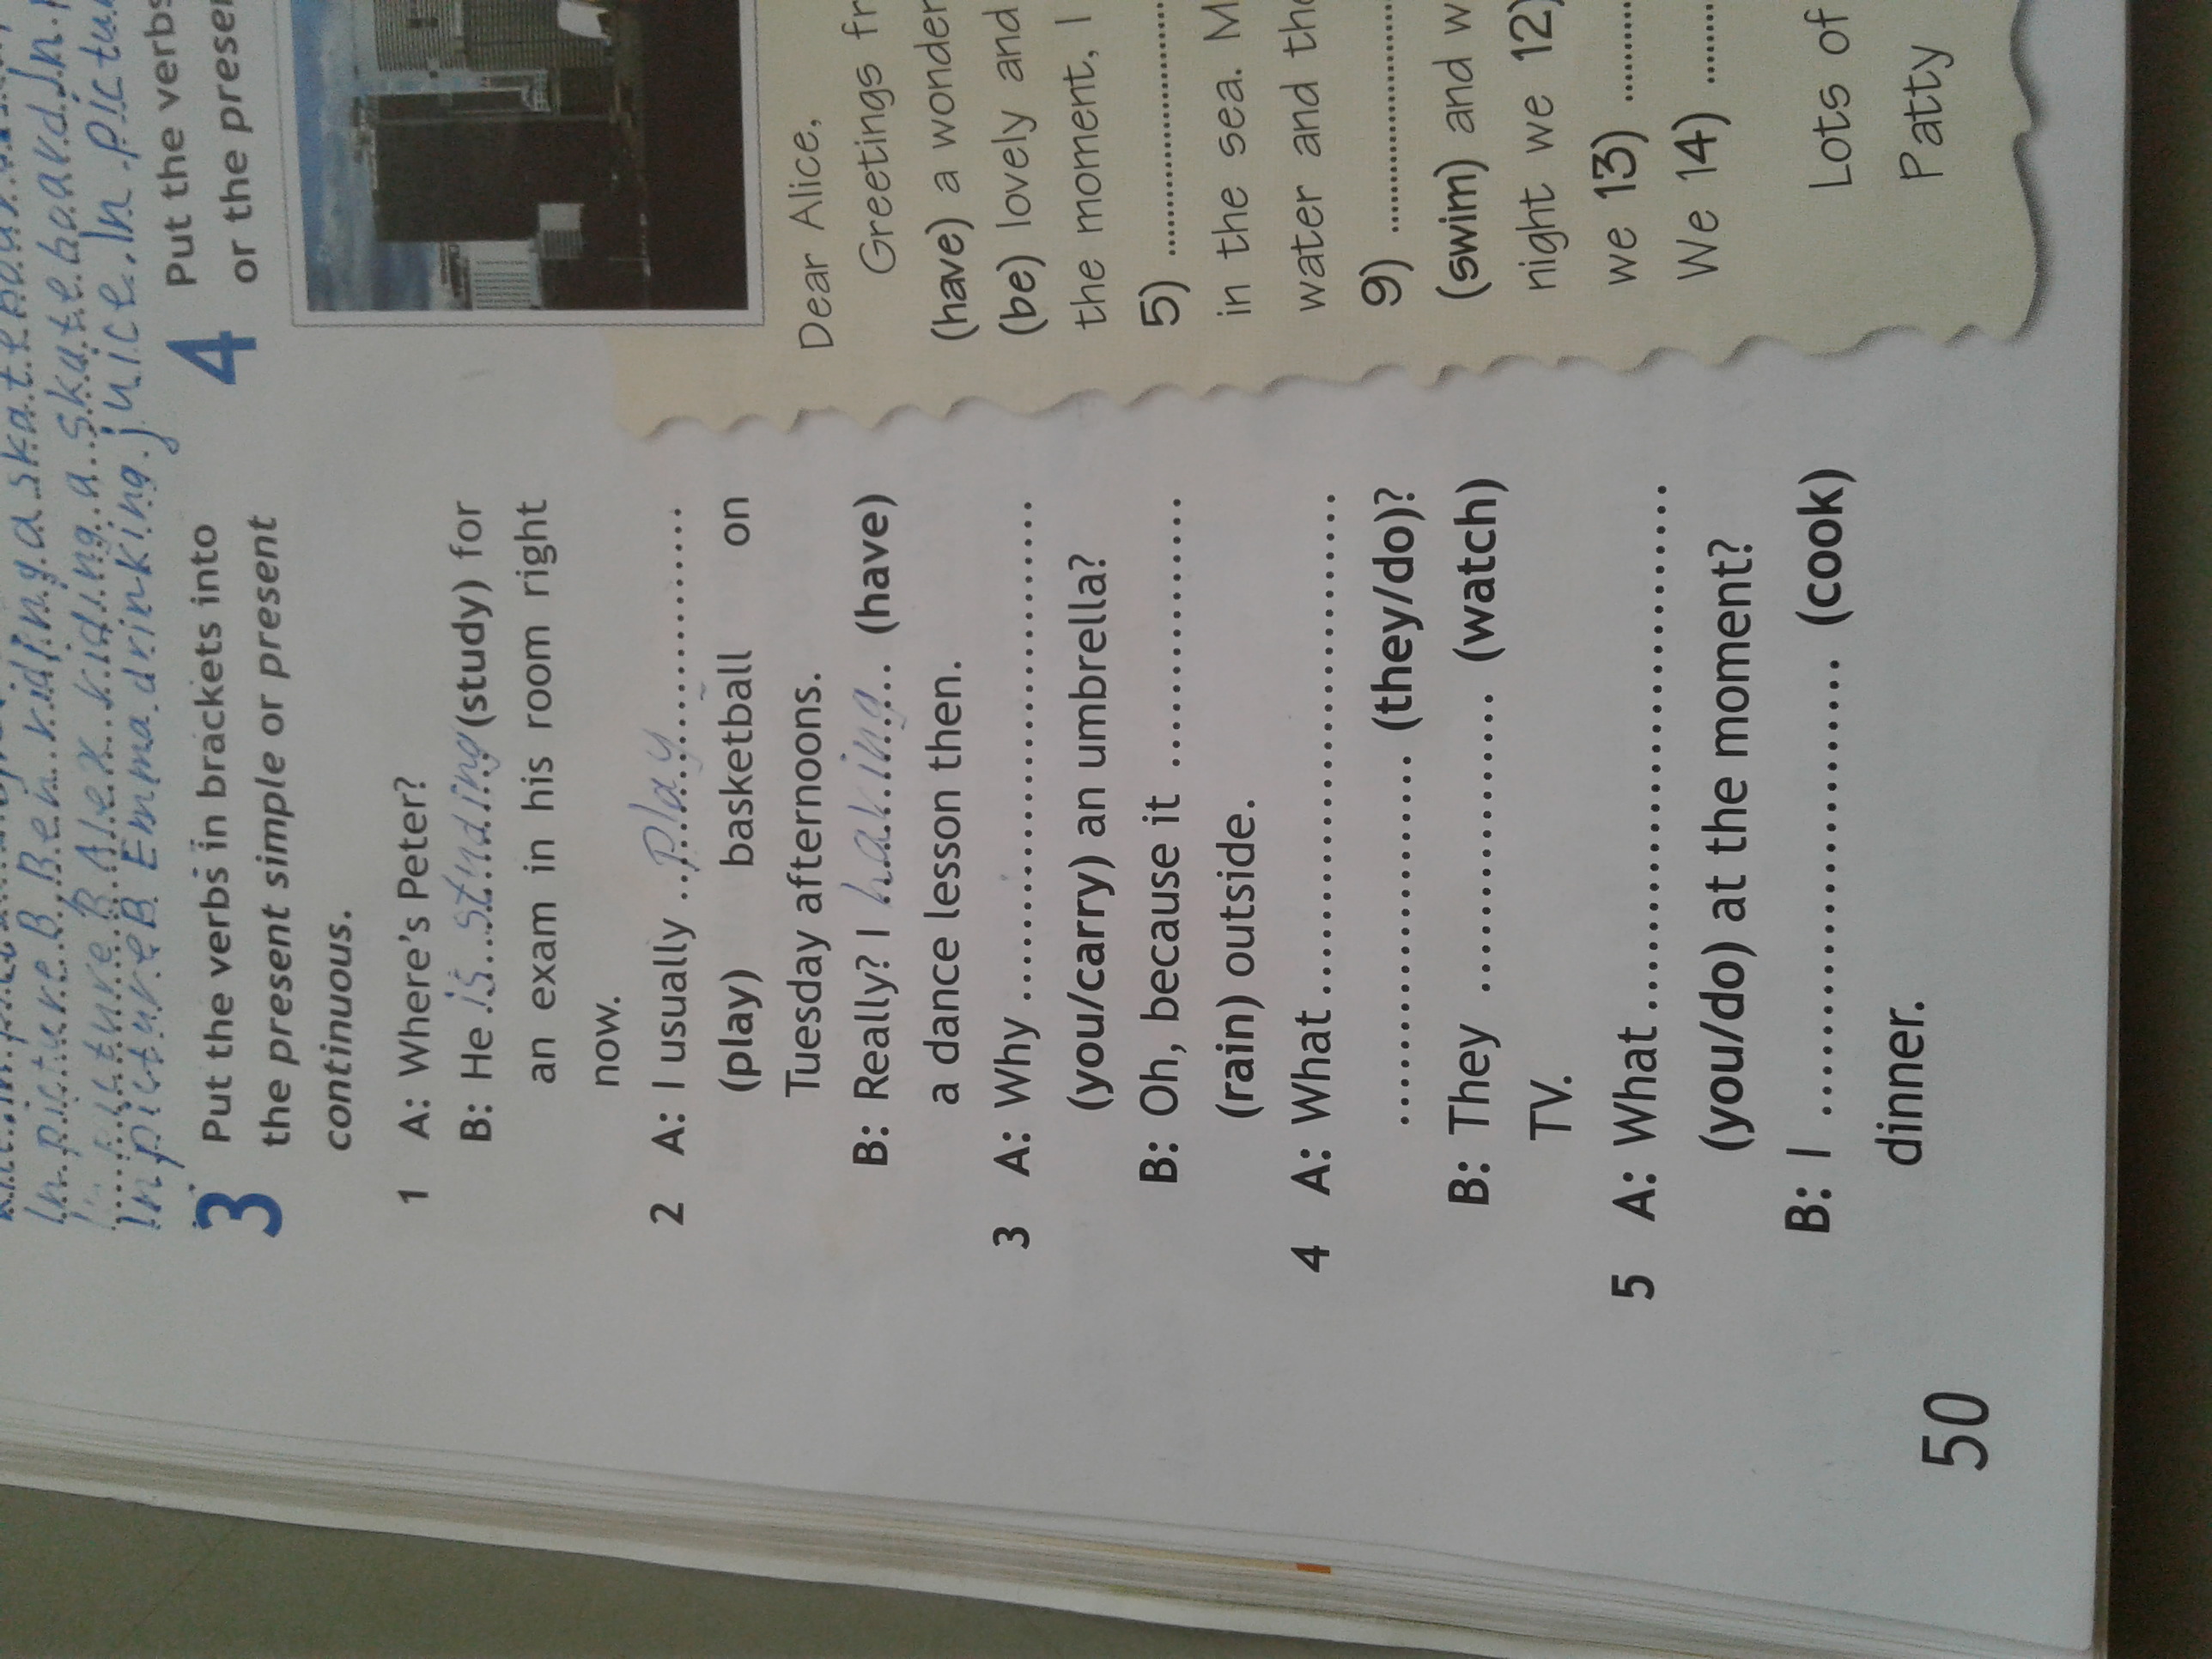 In picture B Ben riding a skateboard. In p
picture B Alex riding a skateboard. In p
In picture B Emma drinking juice. In pictu
3 Put the verbs in brackets into
the present simple or present
continuous.
1 A: Where's Peter?
B: He is studing (study) for
an exam in his room right
now.
2 A: I usually ..play............
(play) basketball on
Tuesday afternoons.
B: Really? I haking... (have)
a dance lesson then.
3 A: Why ....................................
(you/carry) an umbrella?
B: Oh, because it ....................
(rain) outside.
4 A: What....................................
.......................... (they/do)?
B: They ..................... (watch)
TV.
5 A: What....................................
(you/do) at the moment?
B: I ................................ (cook)
dinner.
50
4 Put the verbs
or the presen
Dear Alice,
Greetings fr
(have) a wonder
(be) lovely and
the moment, I
5) ....................
in the sea. M
water and the
9) ....................
(swim) and w
night we 12)
we 13) ........
We 14) ........
Lots of
Patty